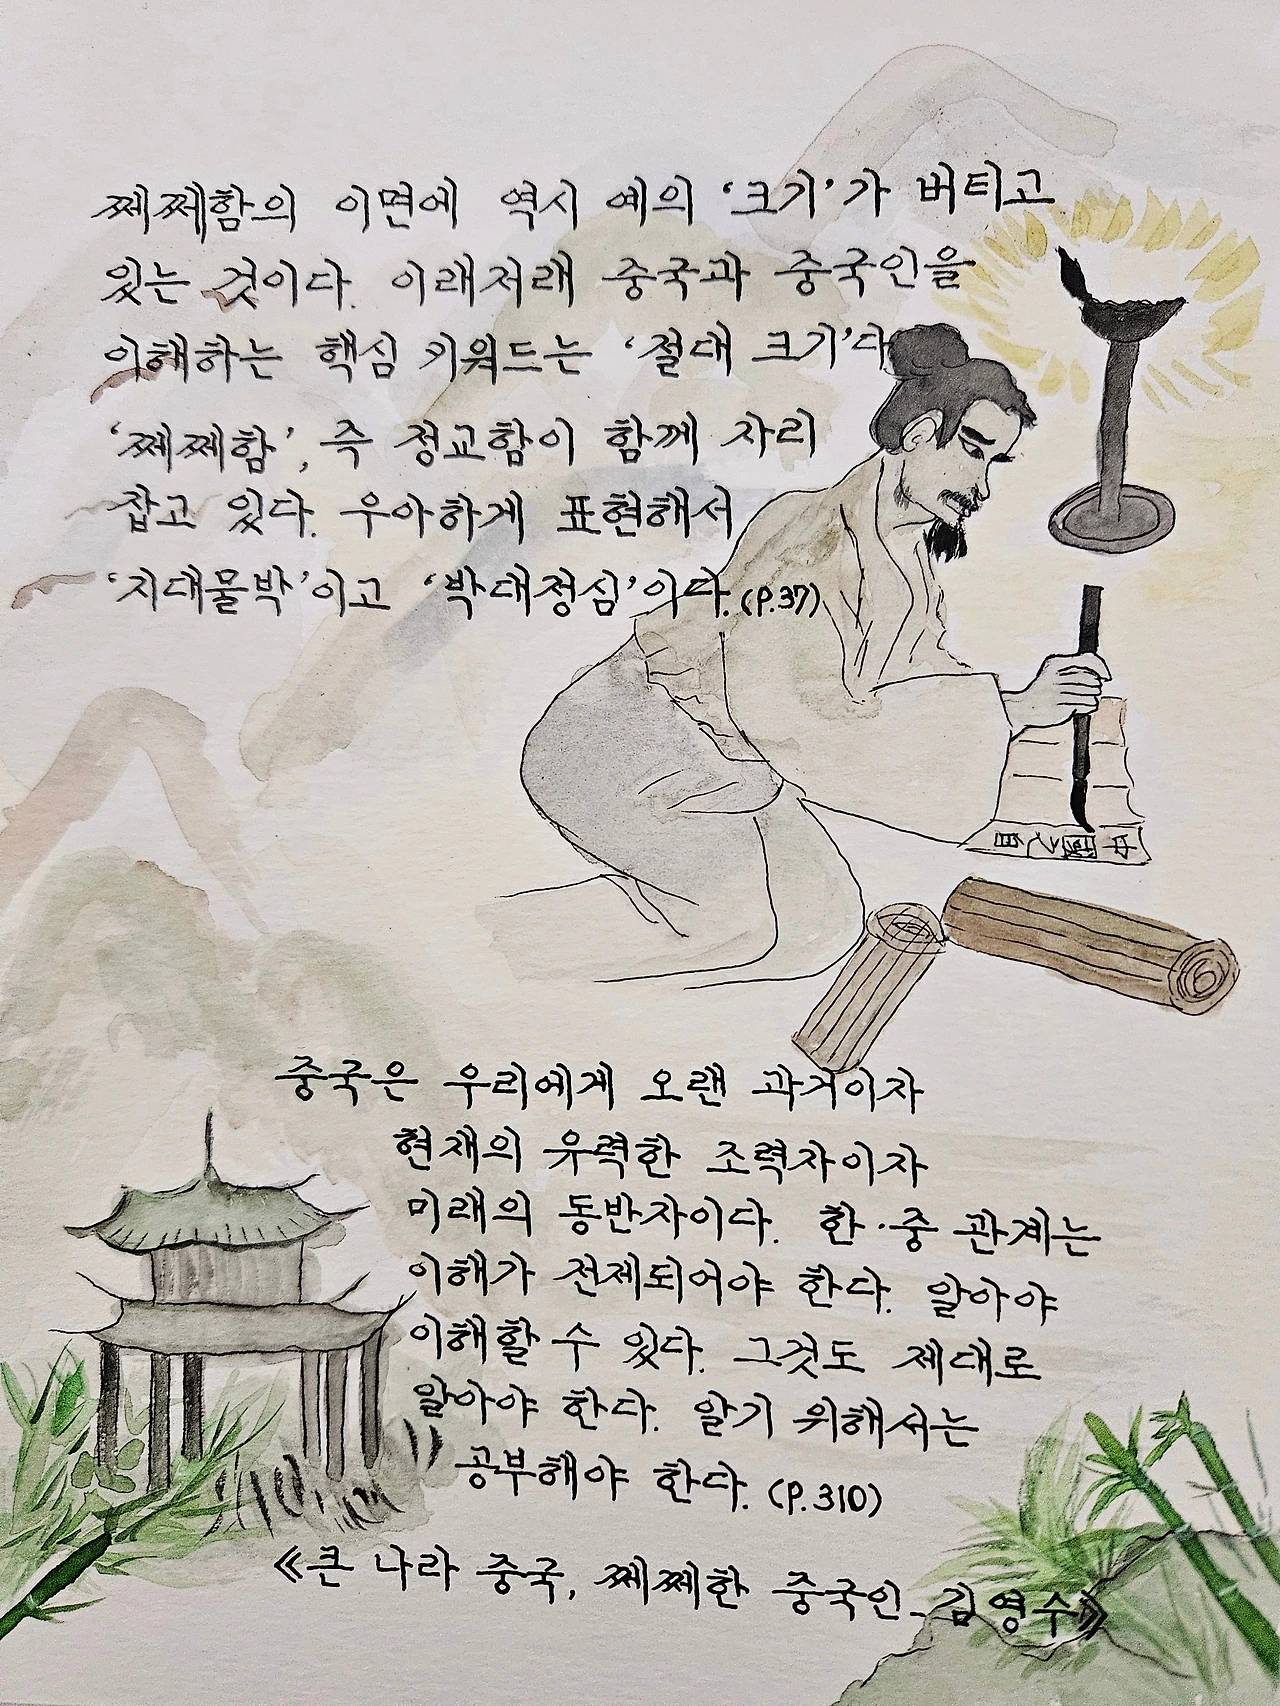 쩨쩨함의 이면에 역시 예의 '크기'가 버티고
있는 것이다. 이래저래 중국과 중국인을
이해하는 핵심 키워드는 '절대 크기'다
'쩨쩨함', 즉 정교함이 함께 자리
잡고 있다. 우아하게 표현해서
'지대물박'이고 '박대정심'이다. (P.37)
중국은 우리에게 오랜 과거이자
현재의 유력한 조력자이자
미래의 동반자이다. 한·중 관계는
이해가 전제되어야 한다. 알아야
이해할 수 있다. 그것도 제대로
알아야 한다. 알기 위해서는
공부해야 한다. (P.310)
《큰 나라 중국, 쩨쩨한 중국인_김영수》